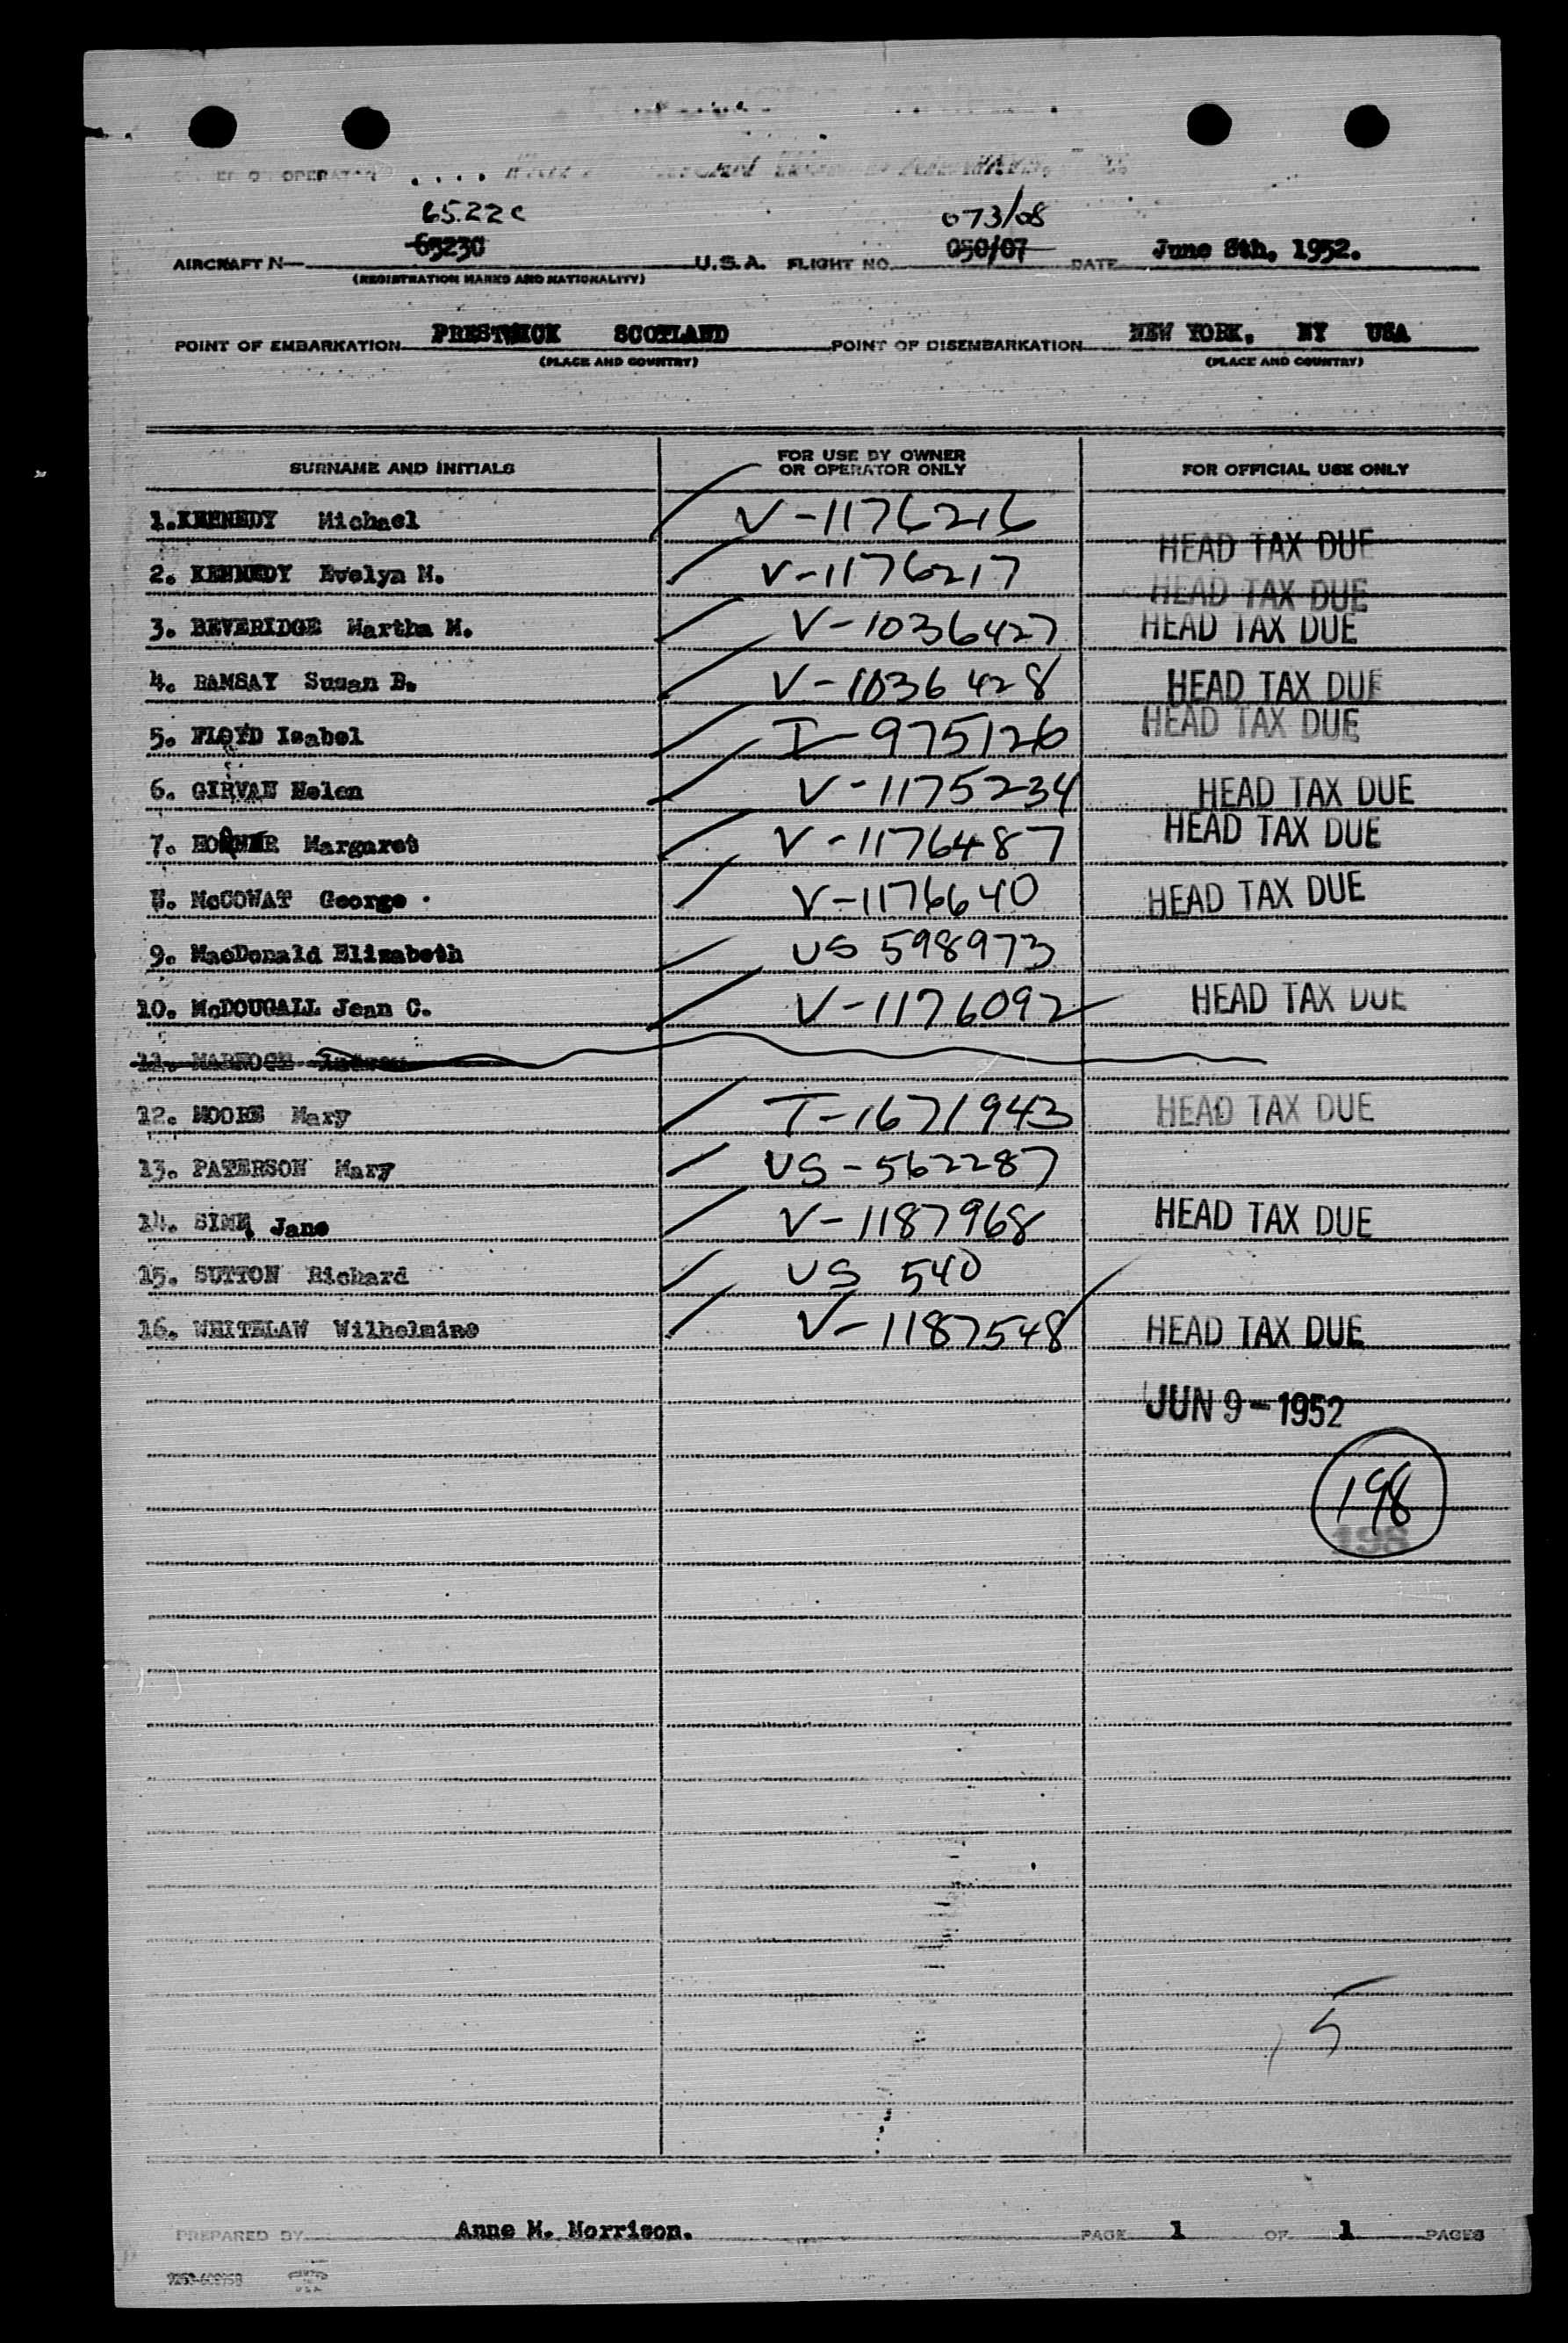 OPERATOR
6522C 073/08
AIRCRAFT N 6523C U.S.A. FLIGHT NO. 050/07 DATE June 8th, 1952.
(REGISTRATION MARKS AND NATIONALITY)
POINT OF EMBARKATION PRESTWICK SCOTLAND POINT OF DISEMBARKATION NEW YORK, NY USA
(PLACE AND COUNTRY) (PLACE AND COUNTRY)
SURNAME AND INITIALS FOR USE BY OWNER OR OPERATOR ONLY FOR OFFICIAL USE ONLY
1. KENNEDY Michael V-1176216 HEAD TAX DUE
2. KENNEDY Evelyn M. V-1176217 HEAD TAX DUE
3. BEVERIDGE Martha M. V-1036427 HEAD TAX DUE
4. RAMSAY Susan B. V-1036428 HEAD TAX DUE
5. FLOYD Isabel I-975126 HEAD TAX DUE
6. GIRVAN Helen V-1175234 HEAD TAX DUE
7. Margaret V-1176487 HEAD TAX DUE
8. McCOWAT George V-1176640 HEAD TAX DUE
9. MacDonald Elizabeth US 598973
10. McDOUGALL Jean C. V-1176092 HEAD TAX DUE
11.
12. MOORE Mary T-1671943 HEAD TAX DUE
13. PATERSON Mary US-562287
14. SIME Jane V-1187968 HEAD TAX DUE
15. SUTTON Richard US 540
16. WHITELAW Wilhelmine V-1187548 HEAD TAX DUE
JUN 9-1952
198
198
5
PREPARED BY Anne M. Morrison. PAGE 1 OF 1 PAGES